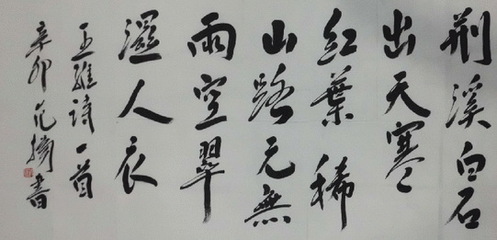 荆溪白石
出天寒
红葉稀
山路元無
雨空翠
濕人衣
王維诗一首
辛卯范書